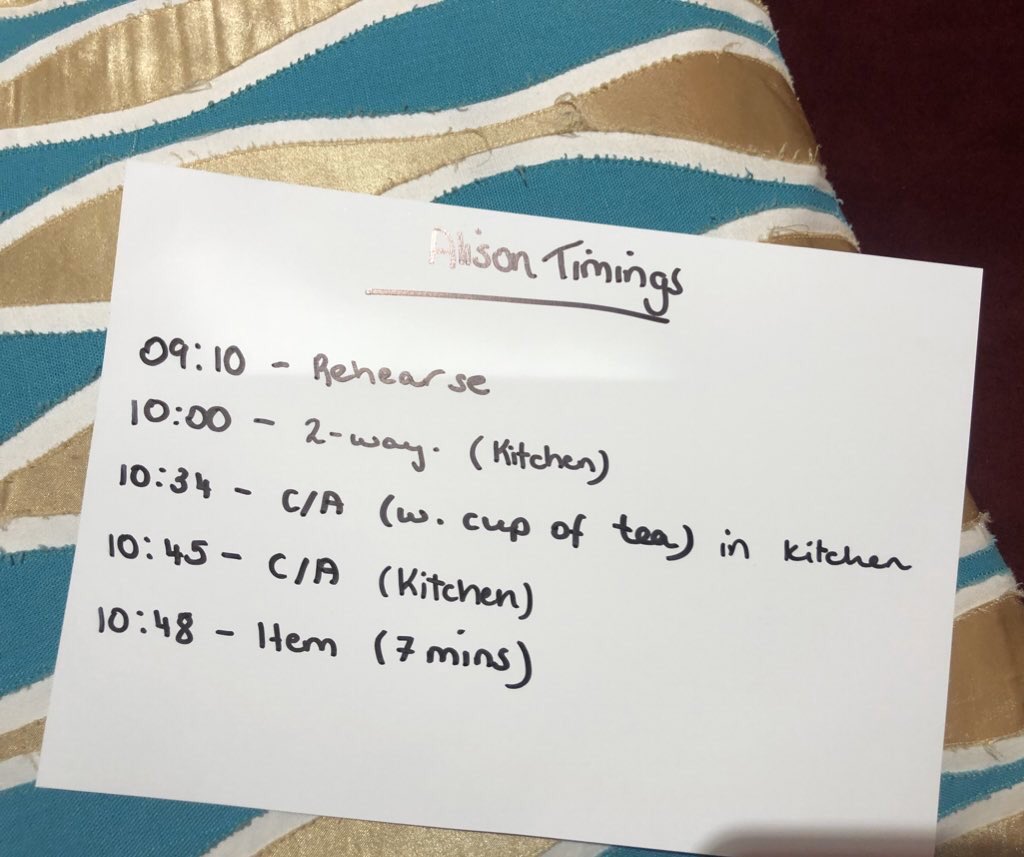 Alison Timings
09:10 - Rehearse
10:00 - 2-way. (Kitchen)
10:34 - C/A (w. cup of tea) in kitchen
10:45 - C/A (Kitchen)
10:48 - Item (7 mins)